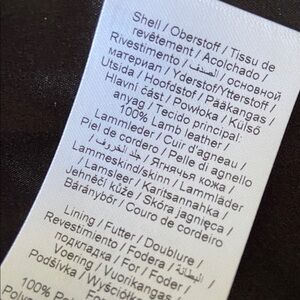 Shell / Oberstoff / Tissu de
revêtement / Acolchado /
Rivestimento / الصدف / основной
материал / Yderstof/Ytterstoff /
Utsida / Hoofdstof / Pääkangas /
Hlavní část / Powłoka / Külső
anyag / Tecido principal:
100% Lamb leather /
Lammleder / Cuir d'agneau /
Piel de cordero / Pelle di agnello
/ جلد الخروف / Ягнячья кожа /
Lammeskind/skinn / Lammskinn
/ Lamsleer / Karitsannahka /
Jehněčí kůže / Skóra jagnięca /
Báránybőr / Couro de cordeiro
Lining / Futter / Doublure /
Revestimiento / Fodera / البطانة /
подкладка / For / Foder /
Voering / Vuorikangas
Podšívka / Wyściółka
100%